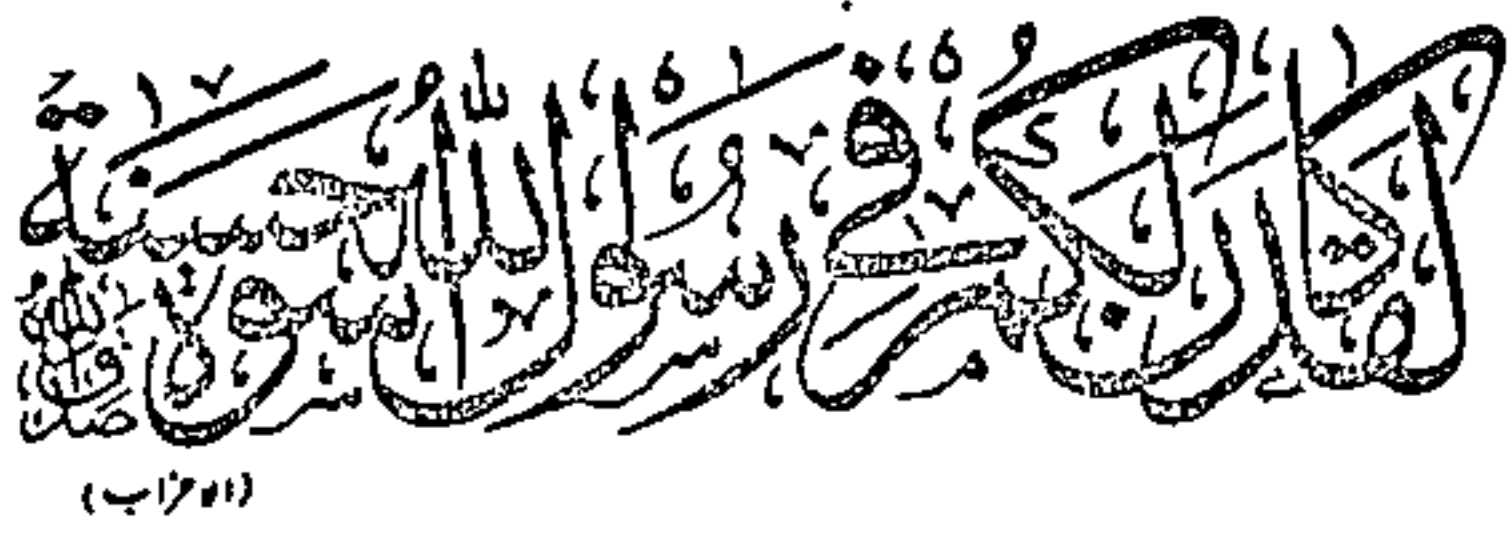 لَقَدْ كَانَ لَكُمْ فِي رَسُولِ اللَّهِ أُسْوَةٌ حَسَنَةٌ
(الاحزاب)